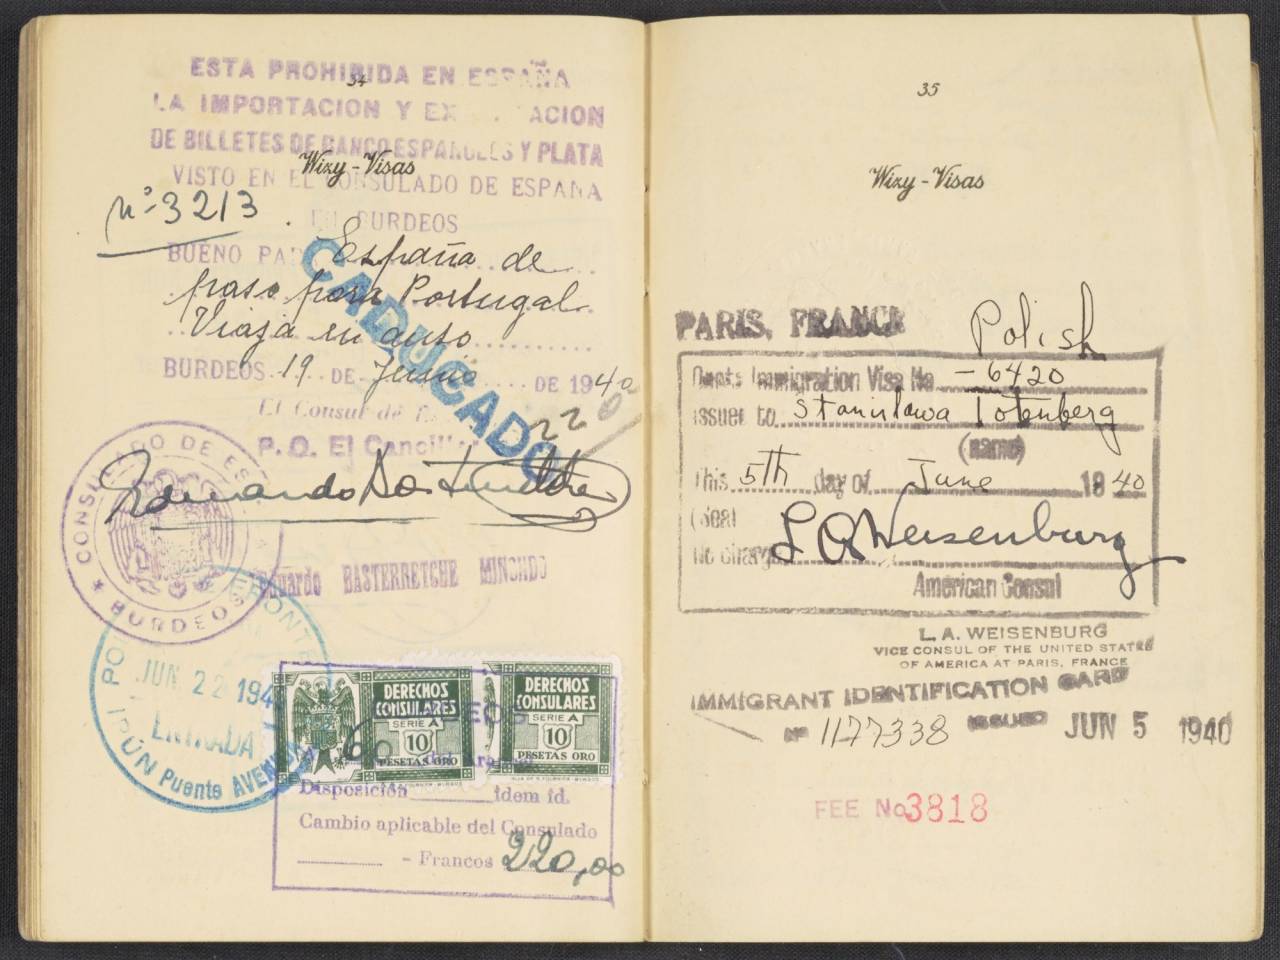 34
ESTA PROHIBIDA EN ESPAÑA
LA IMPORTACION Y EX ACION
DE BILLETES DE BANCO ESPAÑOLES Y PLATA
Wizy-Visas
VISTO EN EL CONSULADO DE ESPANA
Nº 3213
EN BURDEOS
BUENO PARA España de
paso para Portugal
Viaja en auto
BURDEOS 19 DE Junio DE 1940
CADUCADO
220
El Consul de
P. O. El Canciller
CONSULADO DE ESPAÑA
BURDEOS
Eduardo BASTERRETCHE
JUN 22 194
ENTRADA
IRÚN Puente AVENIDA
DERECHOS CONSULARES
SERIE A
10
PESETAS ORO
DERECHOS CONSULARES
SERIE A
10
PESETAS ORO
60
Disposición idem id.
Cambio aplicable del Consulado
- Francos 220,00
35
Wizy-Visas
PARIS, FRANCE
Polish
Immigration Visa No -6420
issued to Stanislawa Totenberg
(name)
This 5th day of June 1940
(Seal
No Charge L A Weisenburg
American Consul
L. A. WEISENBURG
VICE CONSUL OF THE UNITED STATES
OF AMERICA AT PARIS, FRANCE
IMMIGRANT IDENTIFICATION CARD
Nº 1177338 ISSUED JUN 5 1940
FEE No 3818